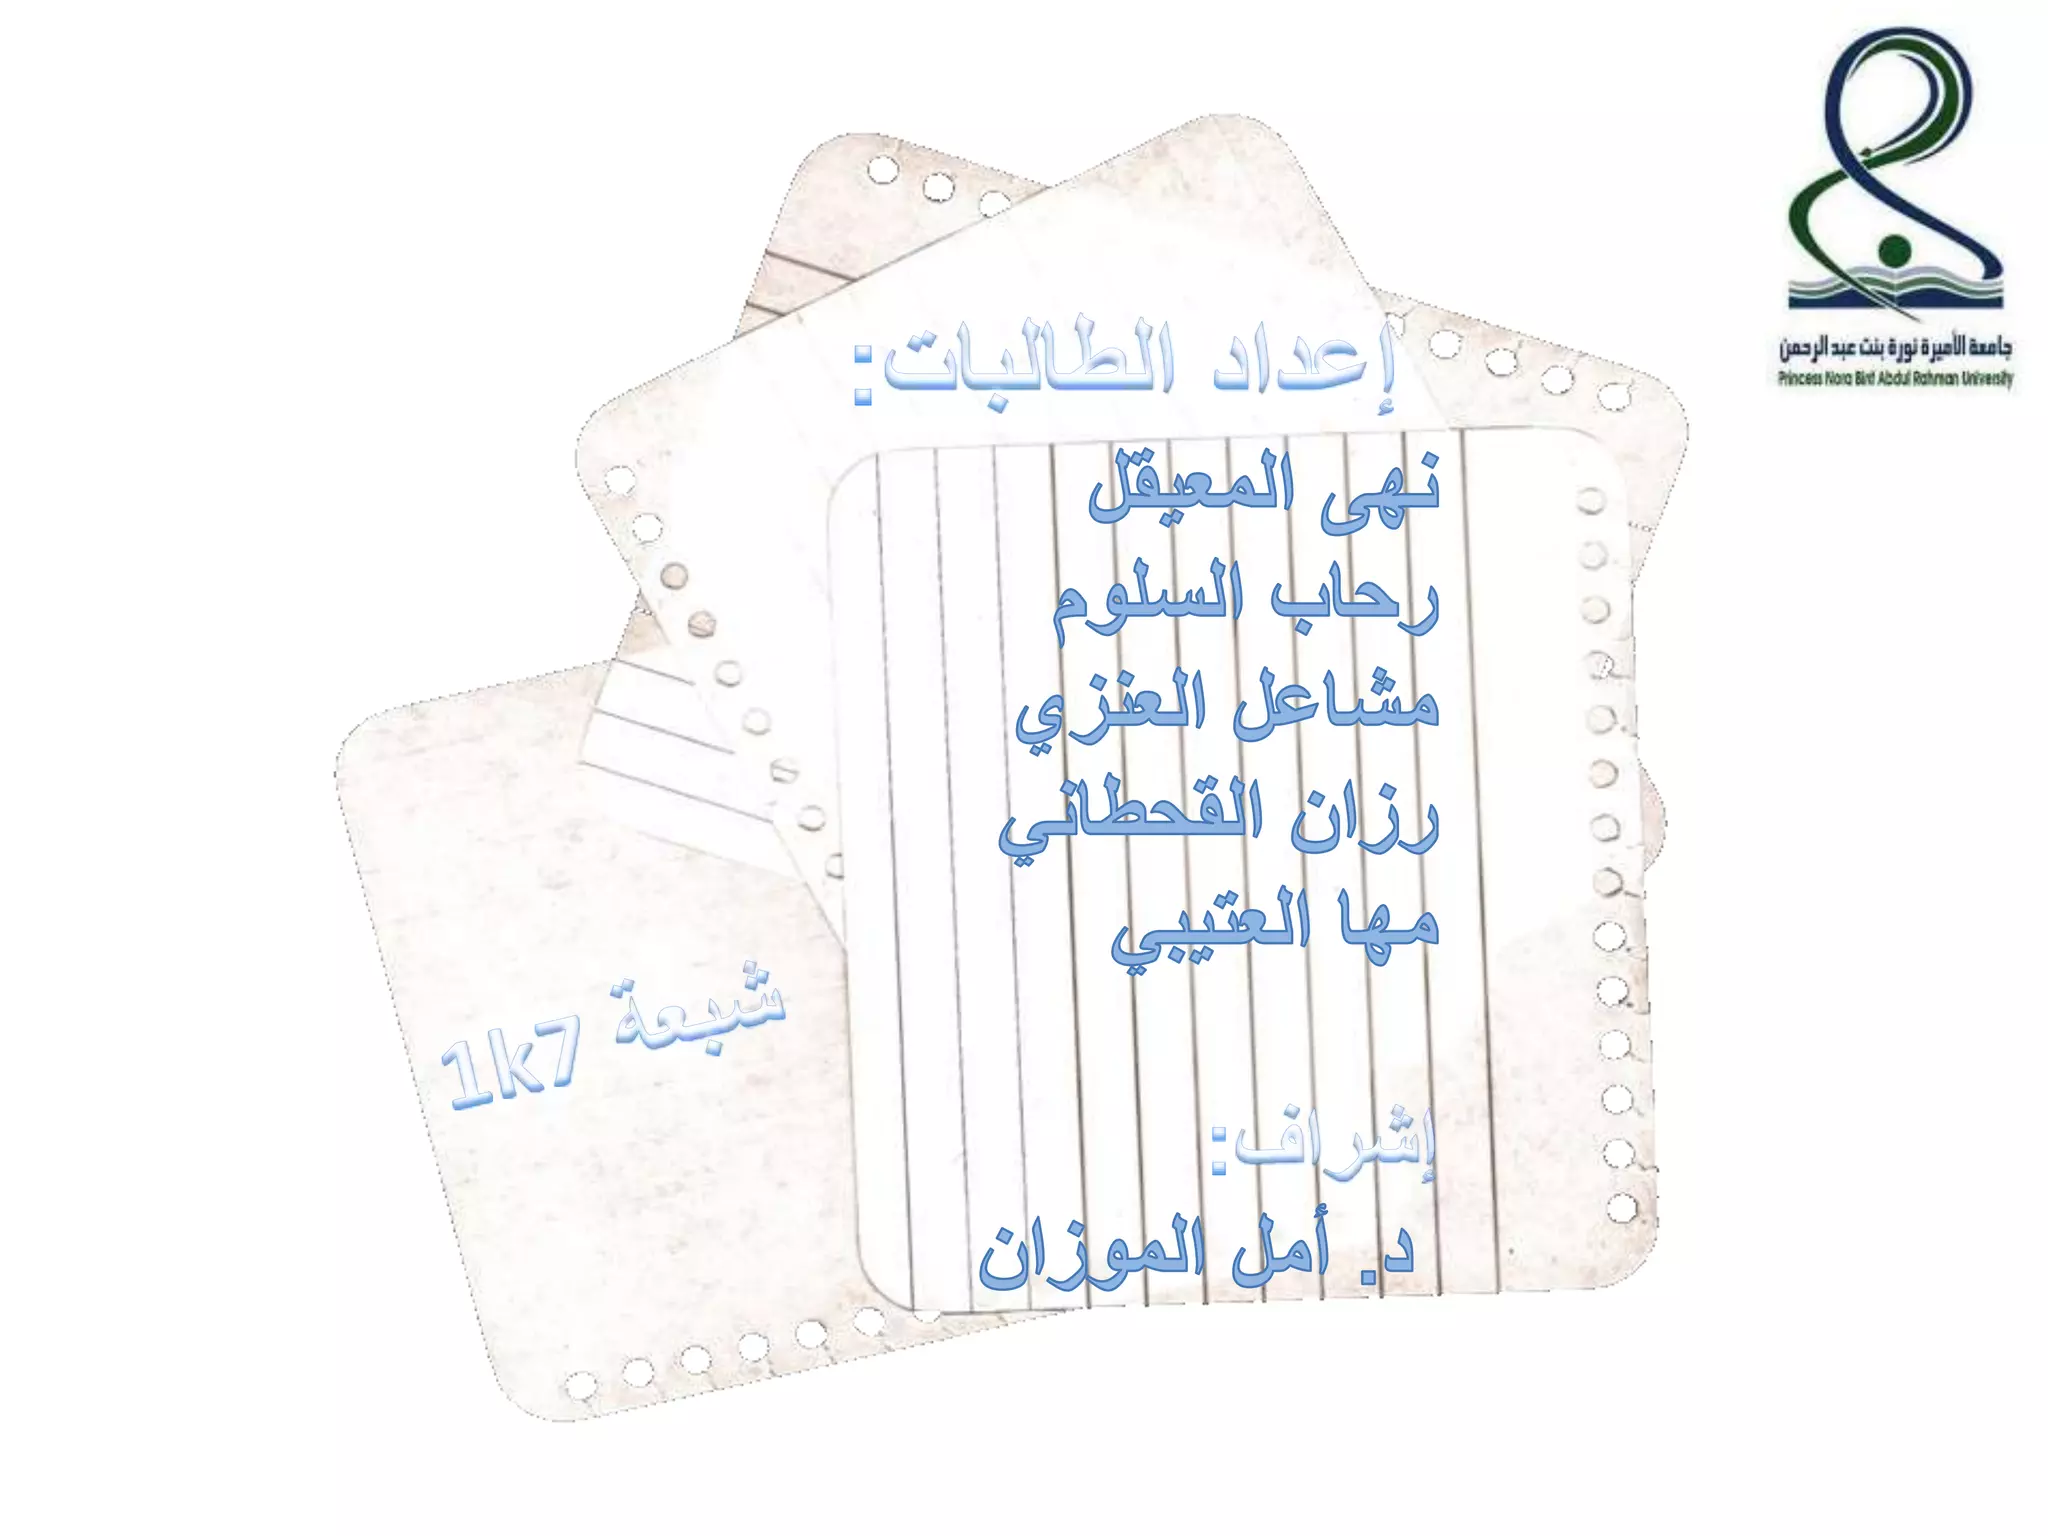 جامعة الأميرة نورة بنت عبد الرحمن
Princess Nora Bint Abdul Rahman University
إعداد الطالبات:
نهى المعيقل
رحاب السلوم
مشاعل العنزي
رزان القحطاني
مها العتيبي
شبعة 1k7
إشراف:
د. أمل الموزان